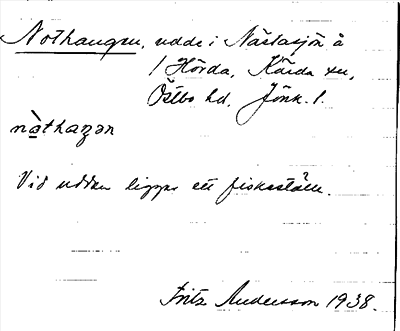 Nothangen, udde i Nästasjön å
1 Hörda, Kärda sn,
Östbo hd, Jönk. l.
nòthaŋən
Vid udden ligger ett fiskeställe.
Fritz Andersson 1938.